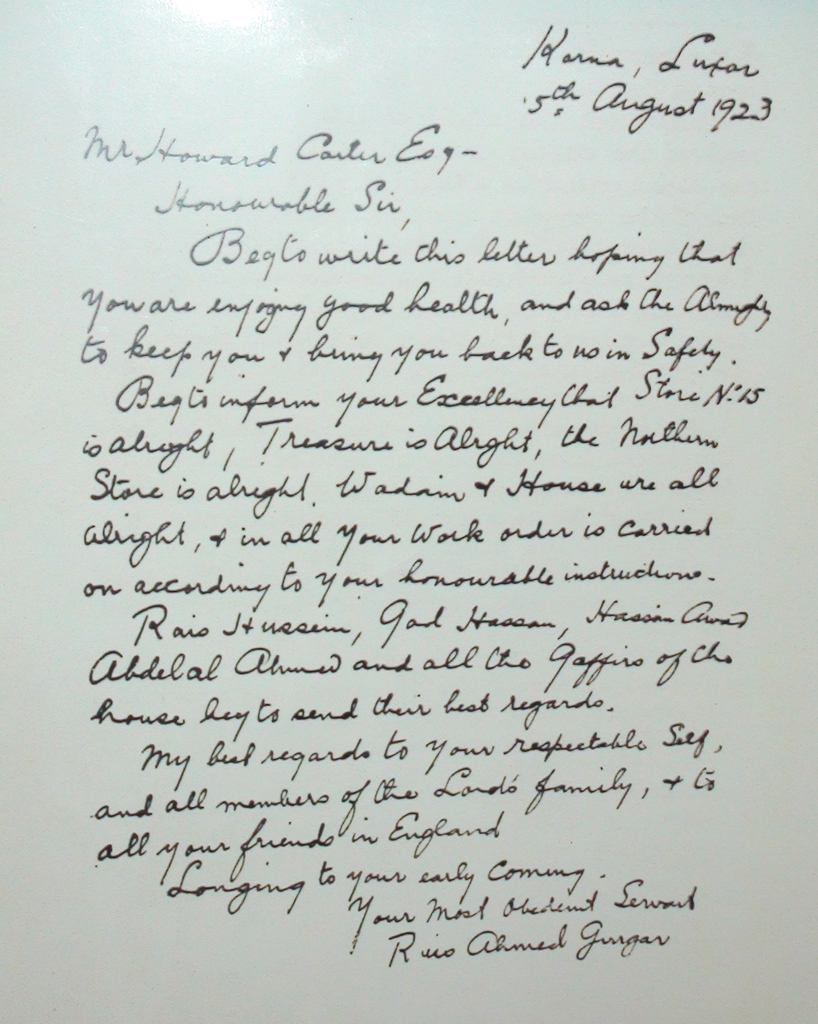 Karna, Luxor
5th August 1923
Mr. Howard Carter Esq-
Honourable Sir,
Beg to write this letter hoping that
you are enjoying good health, and ask the Almighty
to keep you & bring you back to us in Safety.
Beg to inform your Excellency that Store No. 15
is alright, Treasure is Alright, the Northern
Store is alright. Wadain & House are all
alright, & in all your Work order is carried
on according to your honourable instructions.
Rais Hussein, Gad Hassan, Hassan Awad
Abdelal Ahmed and all the Gaffirs of the
house beg to send their best regards.
My best regards to your respectable Self,
and all members of the Lord's family, & to
all your friends in England
Longing to your early coming.
Your Most Obedient Servant
Rais Ahmed Gurgar